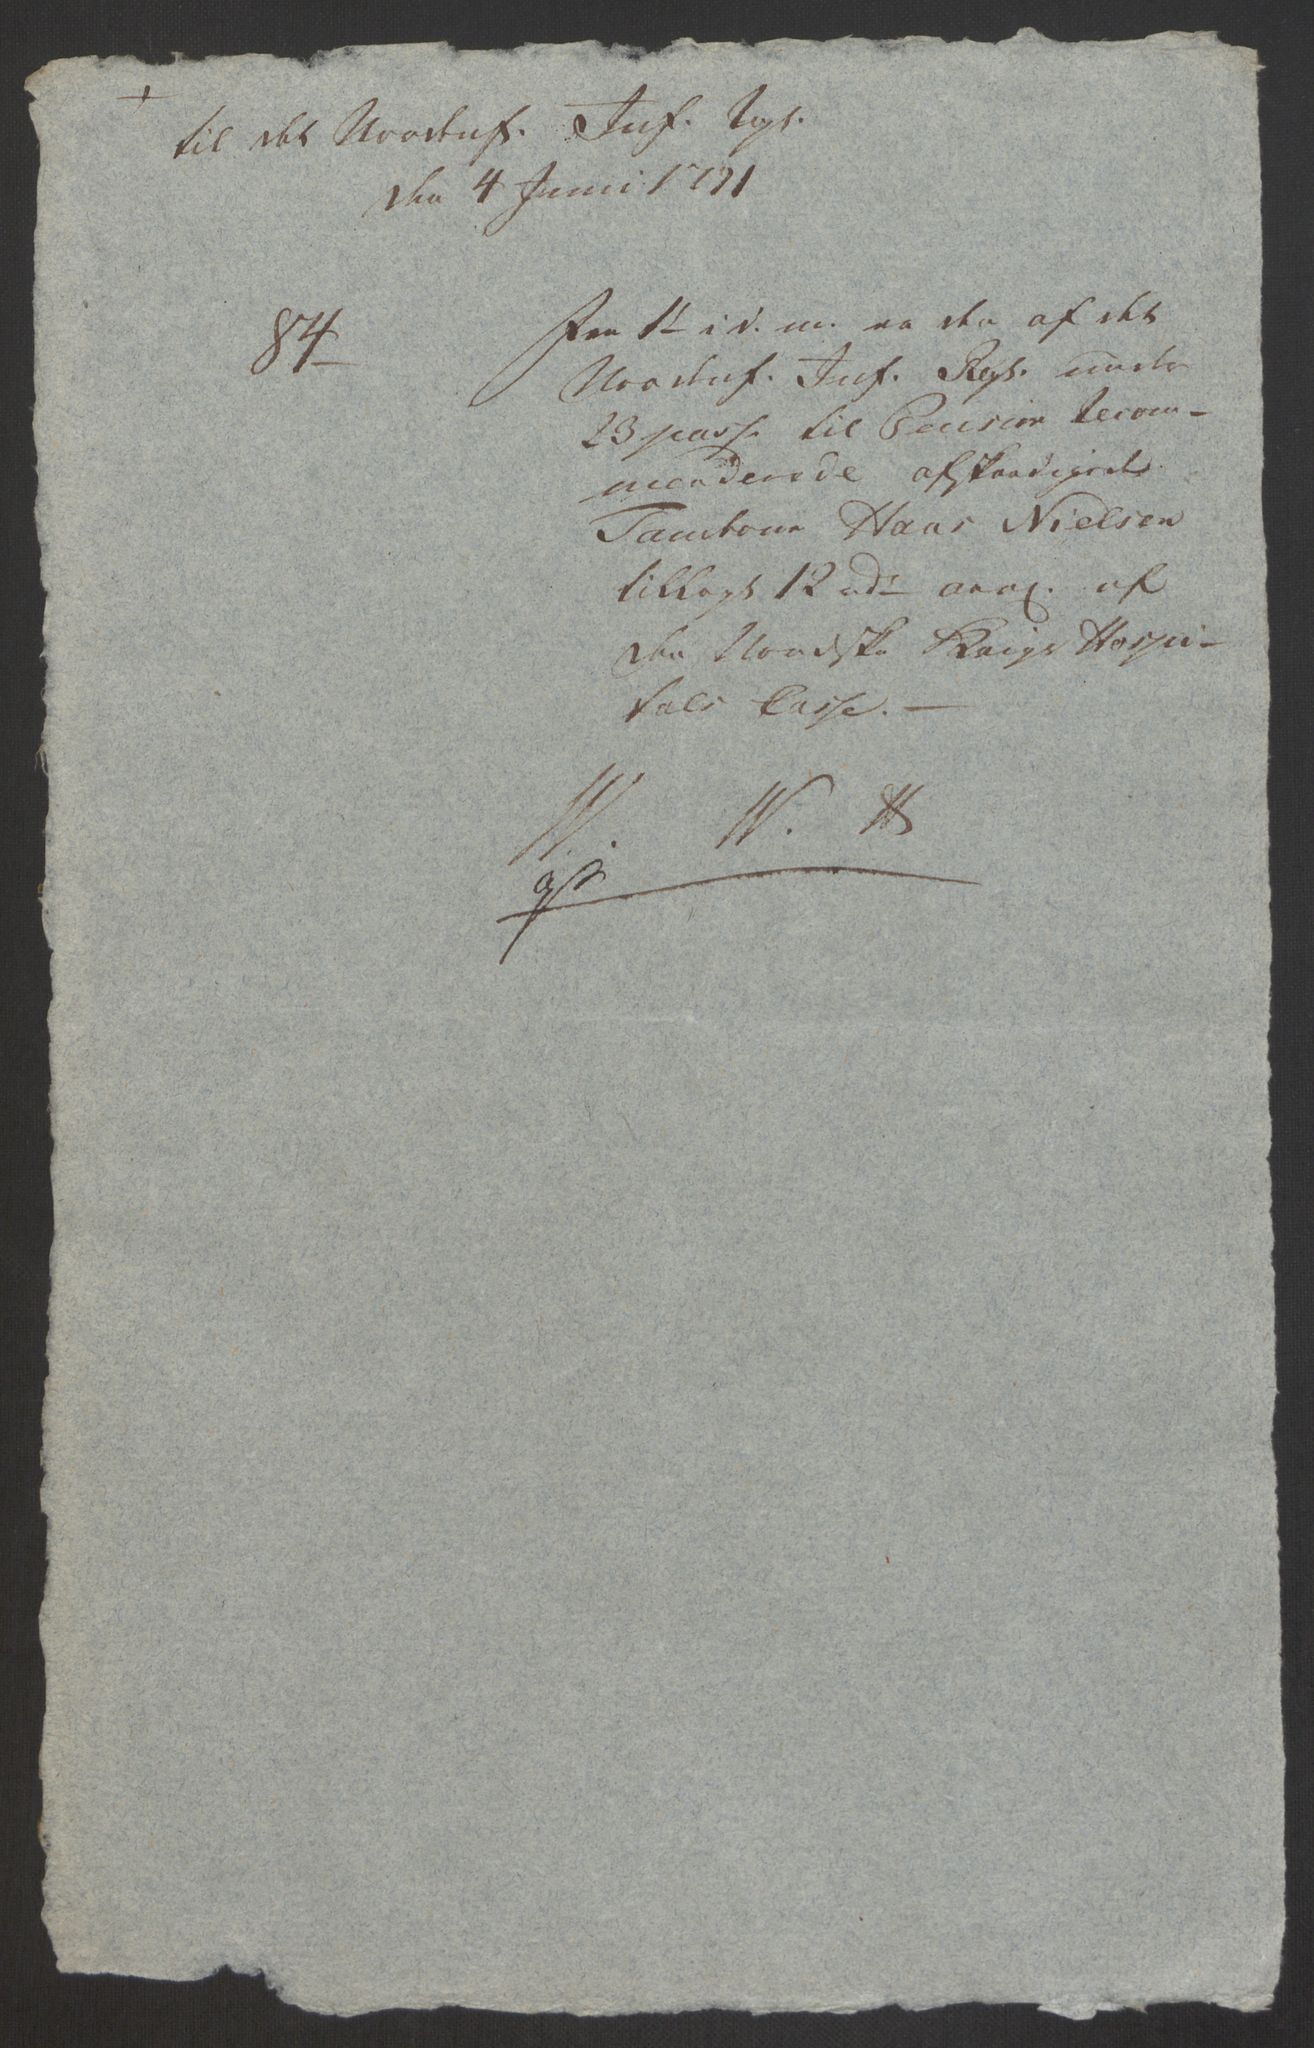 til det Nordenf. Inf. Rgt.
den 4 Junii 1791
84
Fra 1te i d. m. er den af det
Nordenf. Inf. Regt. under
23 pass. til Pension recom-
menderede afskeedigede
Tambour Hans Nielsen
tillagt 12 rdr aarl. af
den Nordske Krigs Hospi-
tals Casse. —
W. W. H